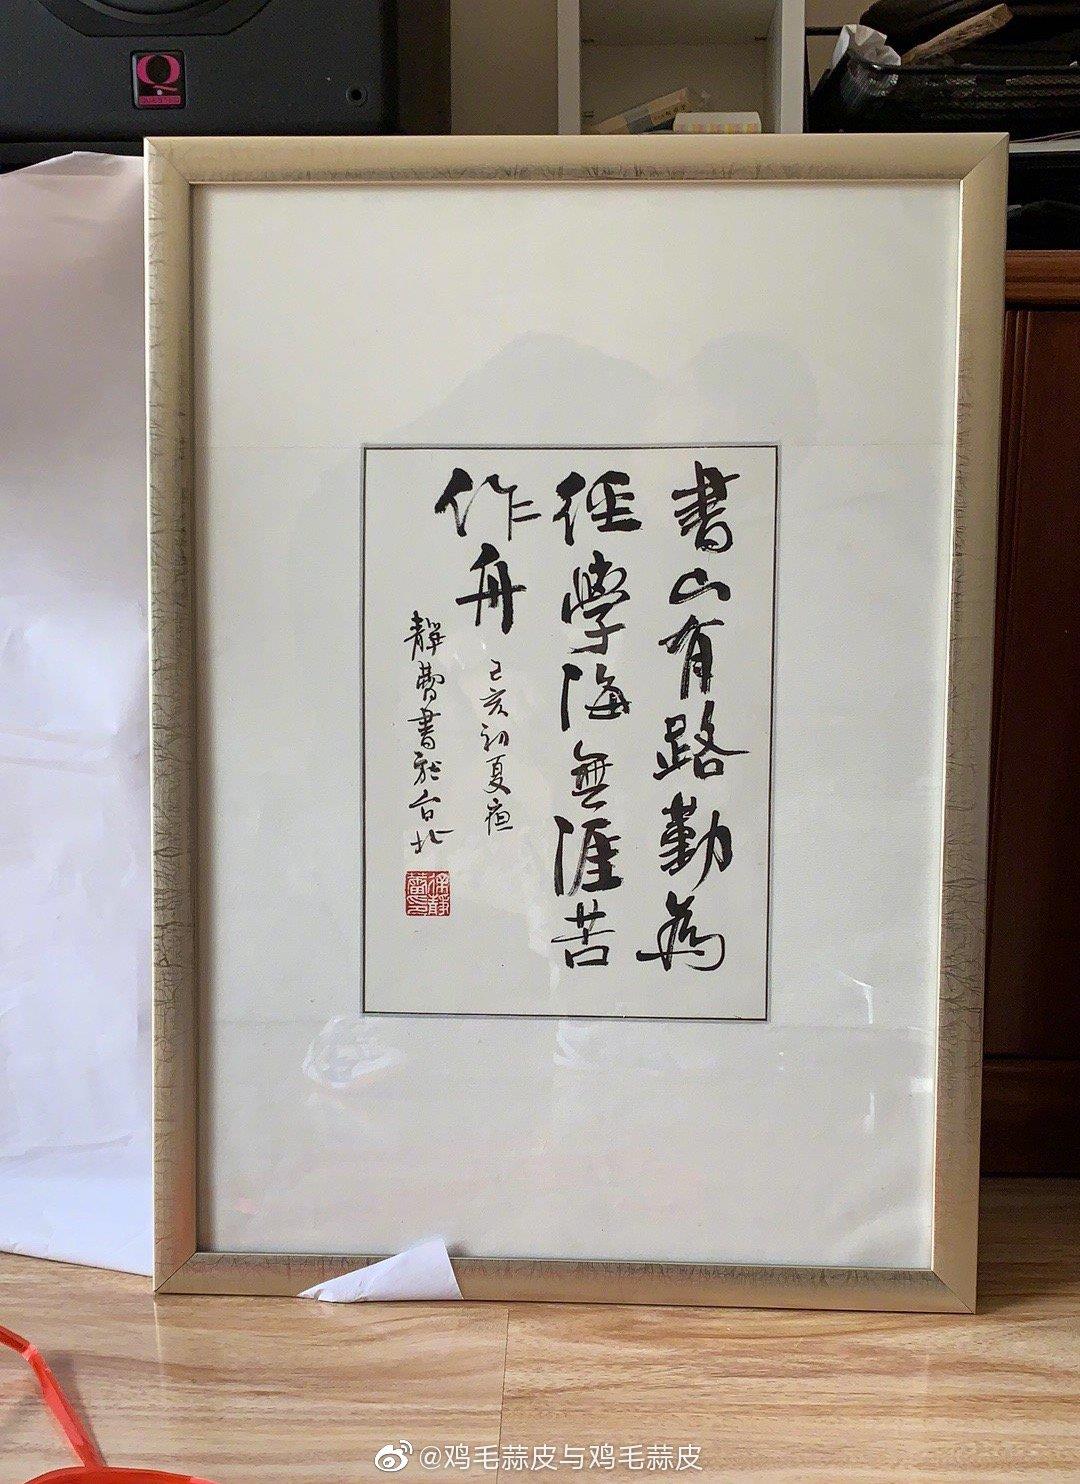 書山有路勤為
徑學海無涯苦
作舟
己亥初夏
靜蕾書於台北
徐靜蕾
Q
QUESTED
@鸡毛蒜皮与鸡毛蒜皮